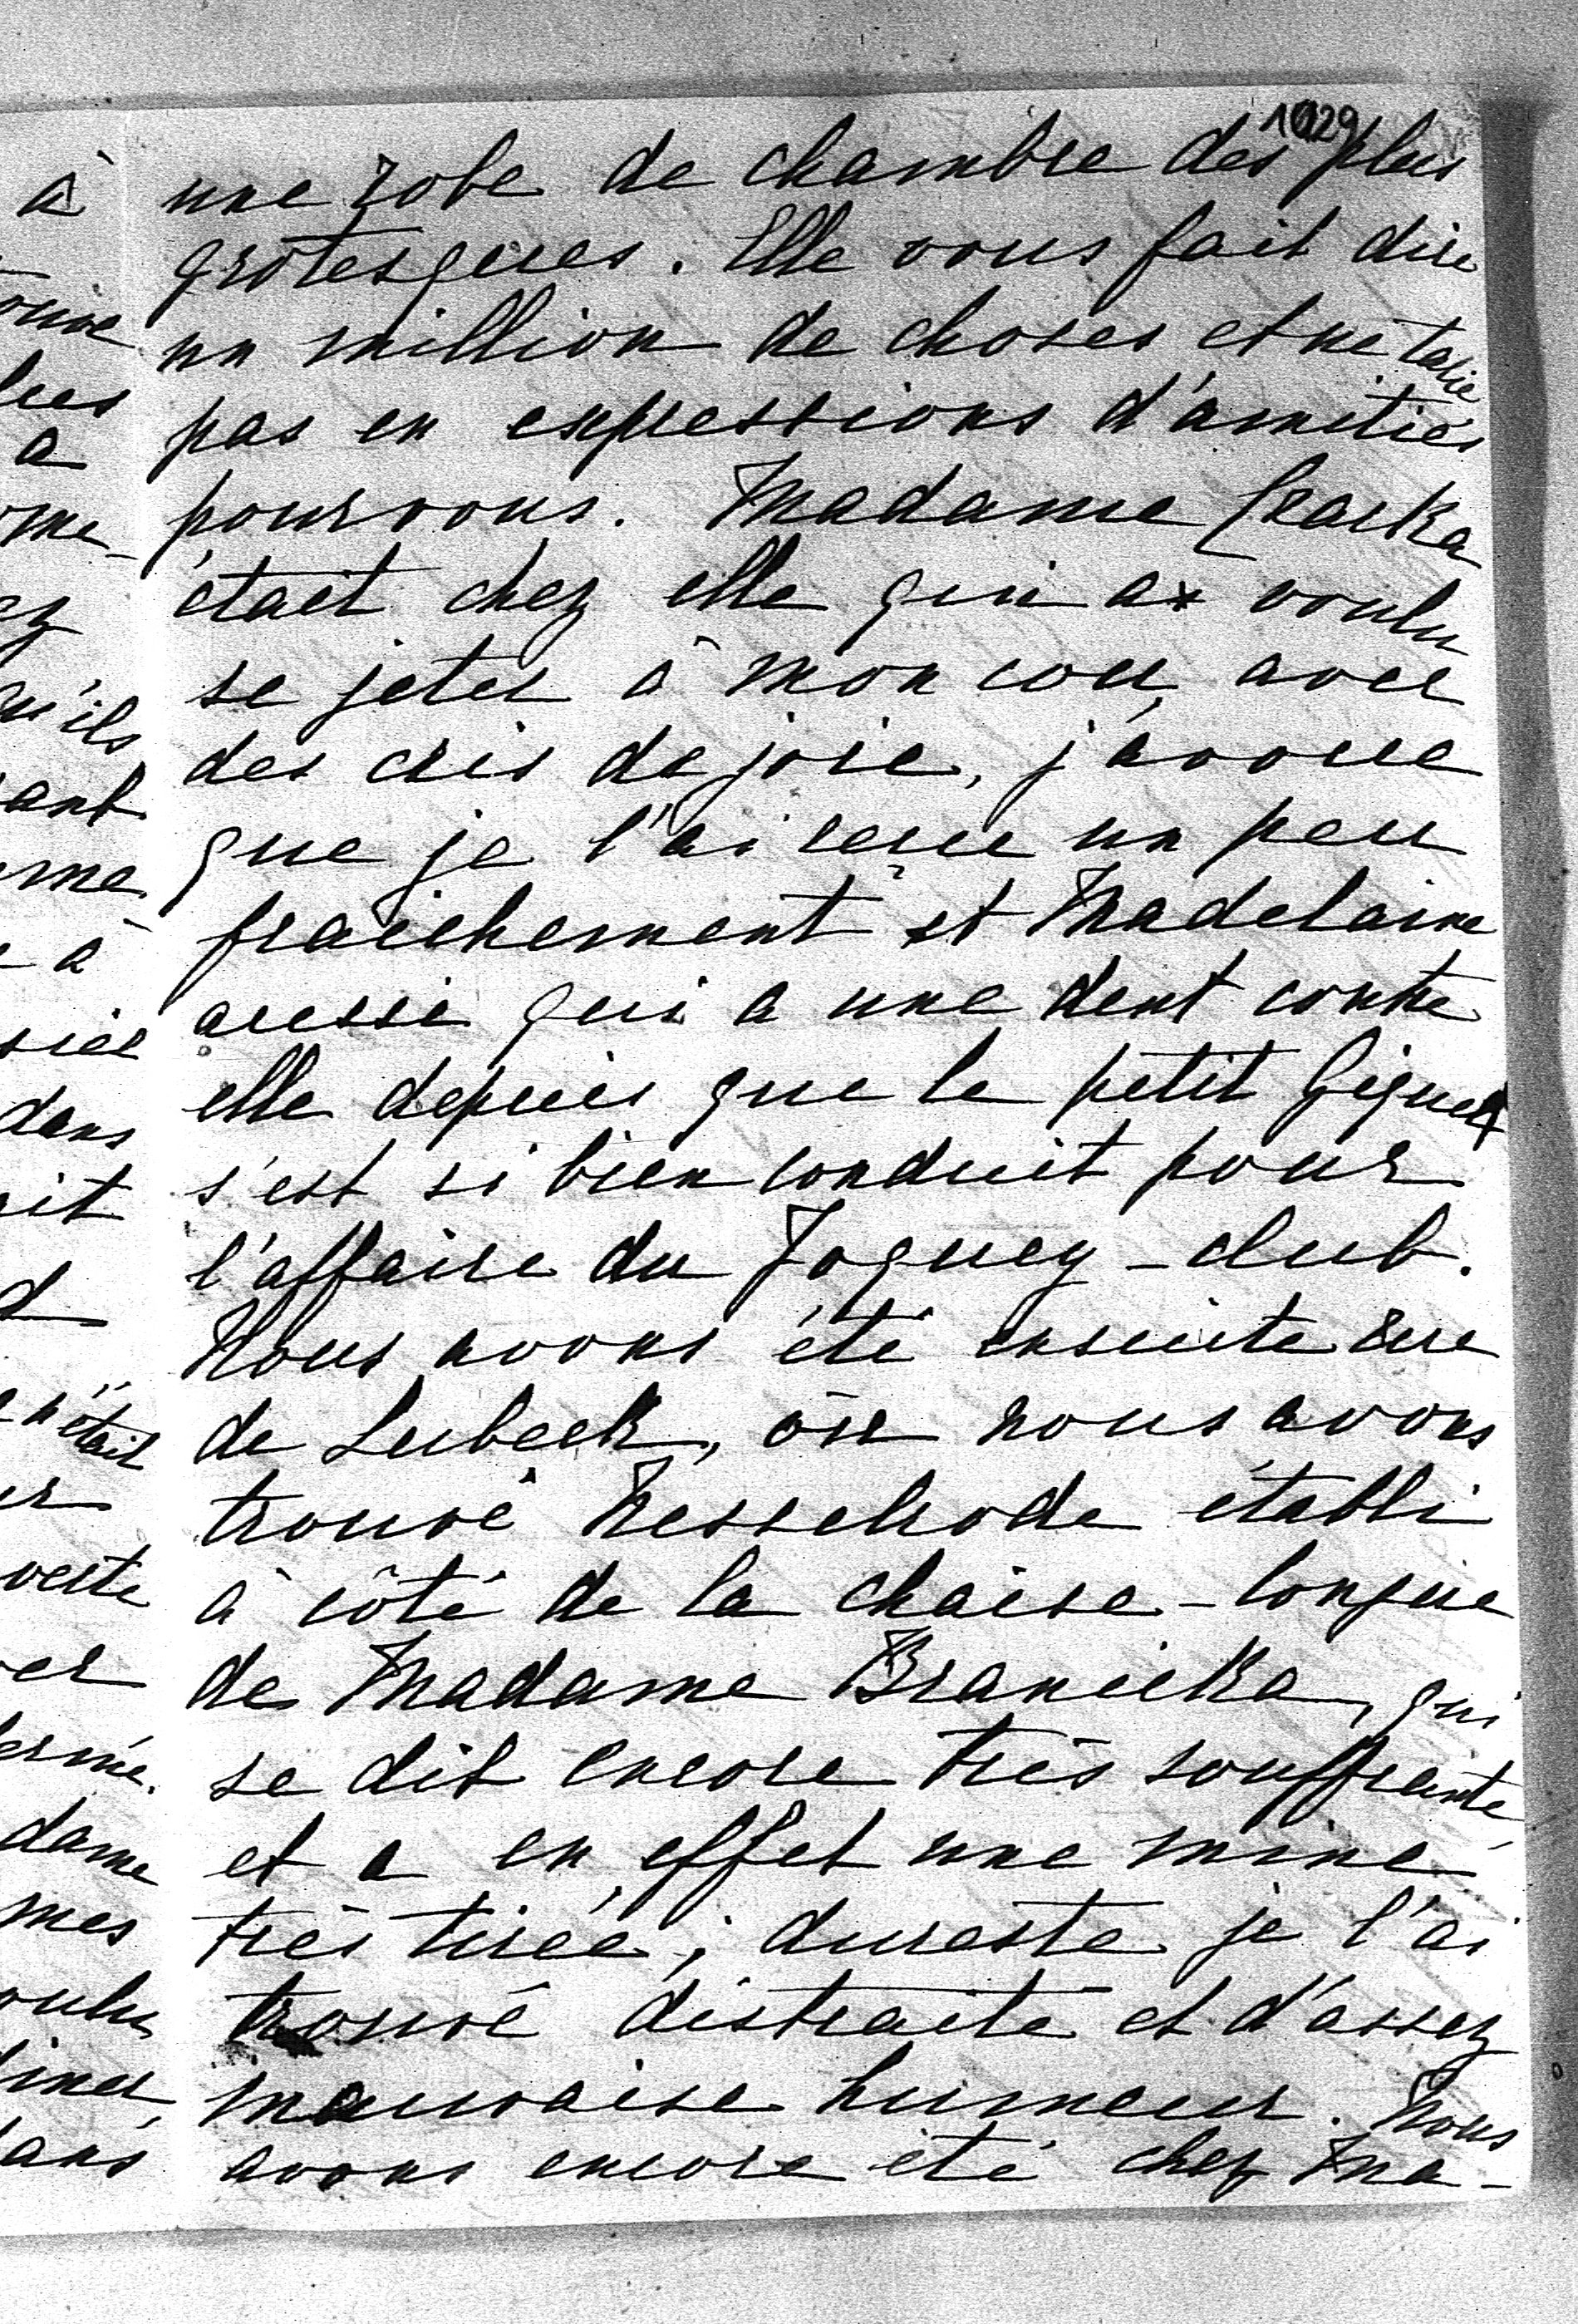 1029
une robe de chambre des plus
grotesques. Elle vous fait dire
un million de choses et ne tarie
pas en expressions d'amitiés
pour vous. Madame
était chez elle qui a voulu
se jeter à mon cou, avec
des cris de joie, j'avoue
que je l'ai reçue un peu
fraîchement et Madelaine
aussi qui a une dent contre
elle depuis que le petit
s'est si bien conduit pour
l'affaire du Joquey-club.
Nous avons été ensuite rue
de Lubeck, où nous avons
trouvé Nesselrode établi
à côté de la chaise-longue
de Madame Branicka, qui
se dit encore très souffrante
et a en effet une mine
très tirée; dureste je l'ai
trouvé distraite et d'assez
mauvaise humeur. Nous
avons encore été chez Ma-